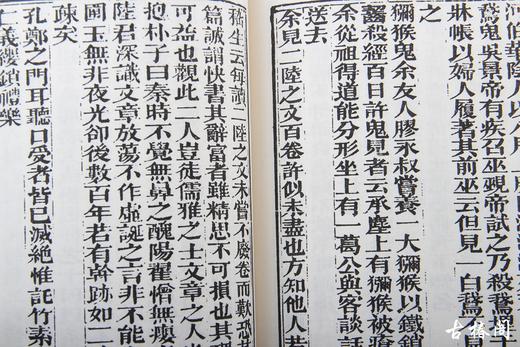 河伯華
鵞鬼吳景帝有疾召巫覡帝試之乃殺鵞埋
牀帳以婦人履著其前巫云但見一白鵞
之
獼猴鬼余友人膠永叔嘗養一大獼猴以鐵鎖
醫殺經百日許鬼見者云承塵上有獼猴被瘡
余從祖得道能分形坐上有一葛公與客談話
送去
余見二陸之文百卷許似未盡也方知他人若
嵇生云每讀二陸之文未嘗不廢卷而歎恐其
篇誠謂快書其辭富者雖精思不可損也其
可益也觀此二人豈徒儒雅之士文章之人
抱朴子曰秦時不覺無鼻之醜陽翟憎無癭
陸君深識文章放蕩不作虛誕之言非不能
圃玉無非夜光卻後數百年若有幹跡如二
疎矣
孔鄭之門耳聽口受者皆已滅絕惟託竹素
義纓鎖禮樂
古椿閣